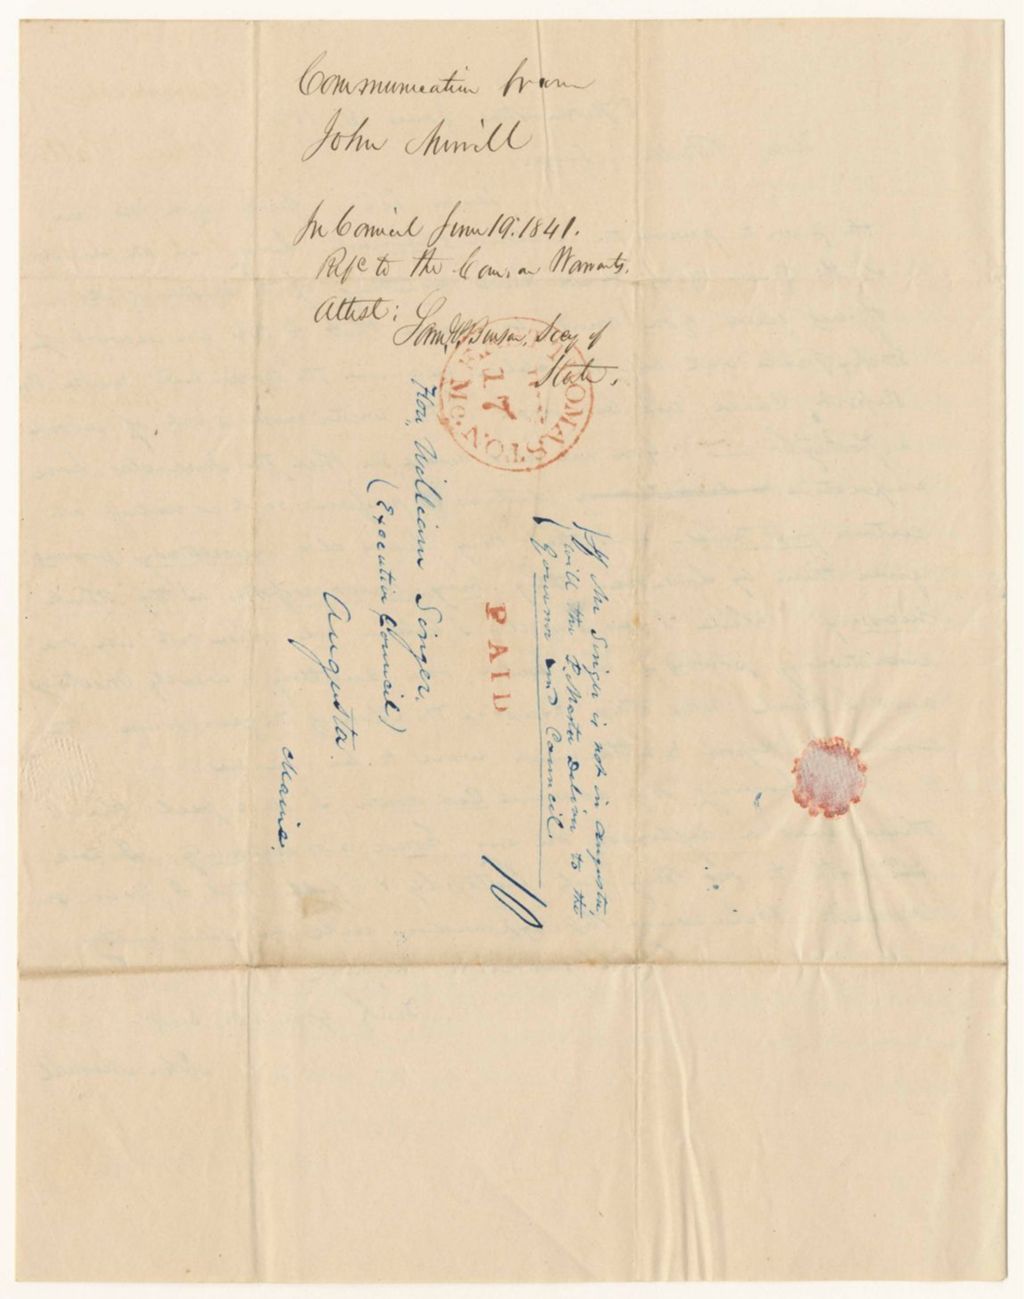 Communication from
John Merrill
In Council June 19. 1841.
Refd to the Com. on Warrants.
Attest:
Saml. P. Benson, Secy of
State.
THOMASTON. Me.
17
Hon, William Singer,
(Executive Council)
Augusta.
Maine.
PAID
10
If Mr Singer is not in Augusta,
will the P. Master Deliver to the
Governor and Council.